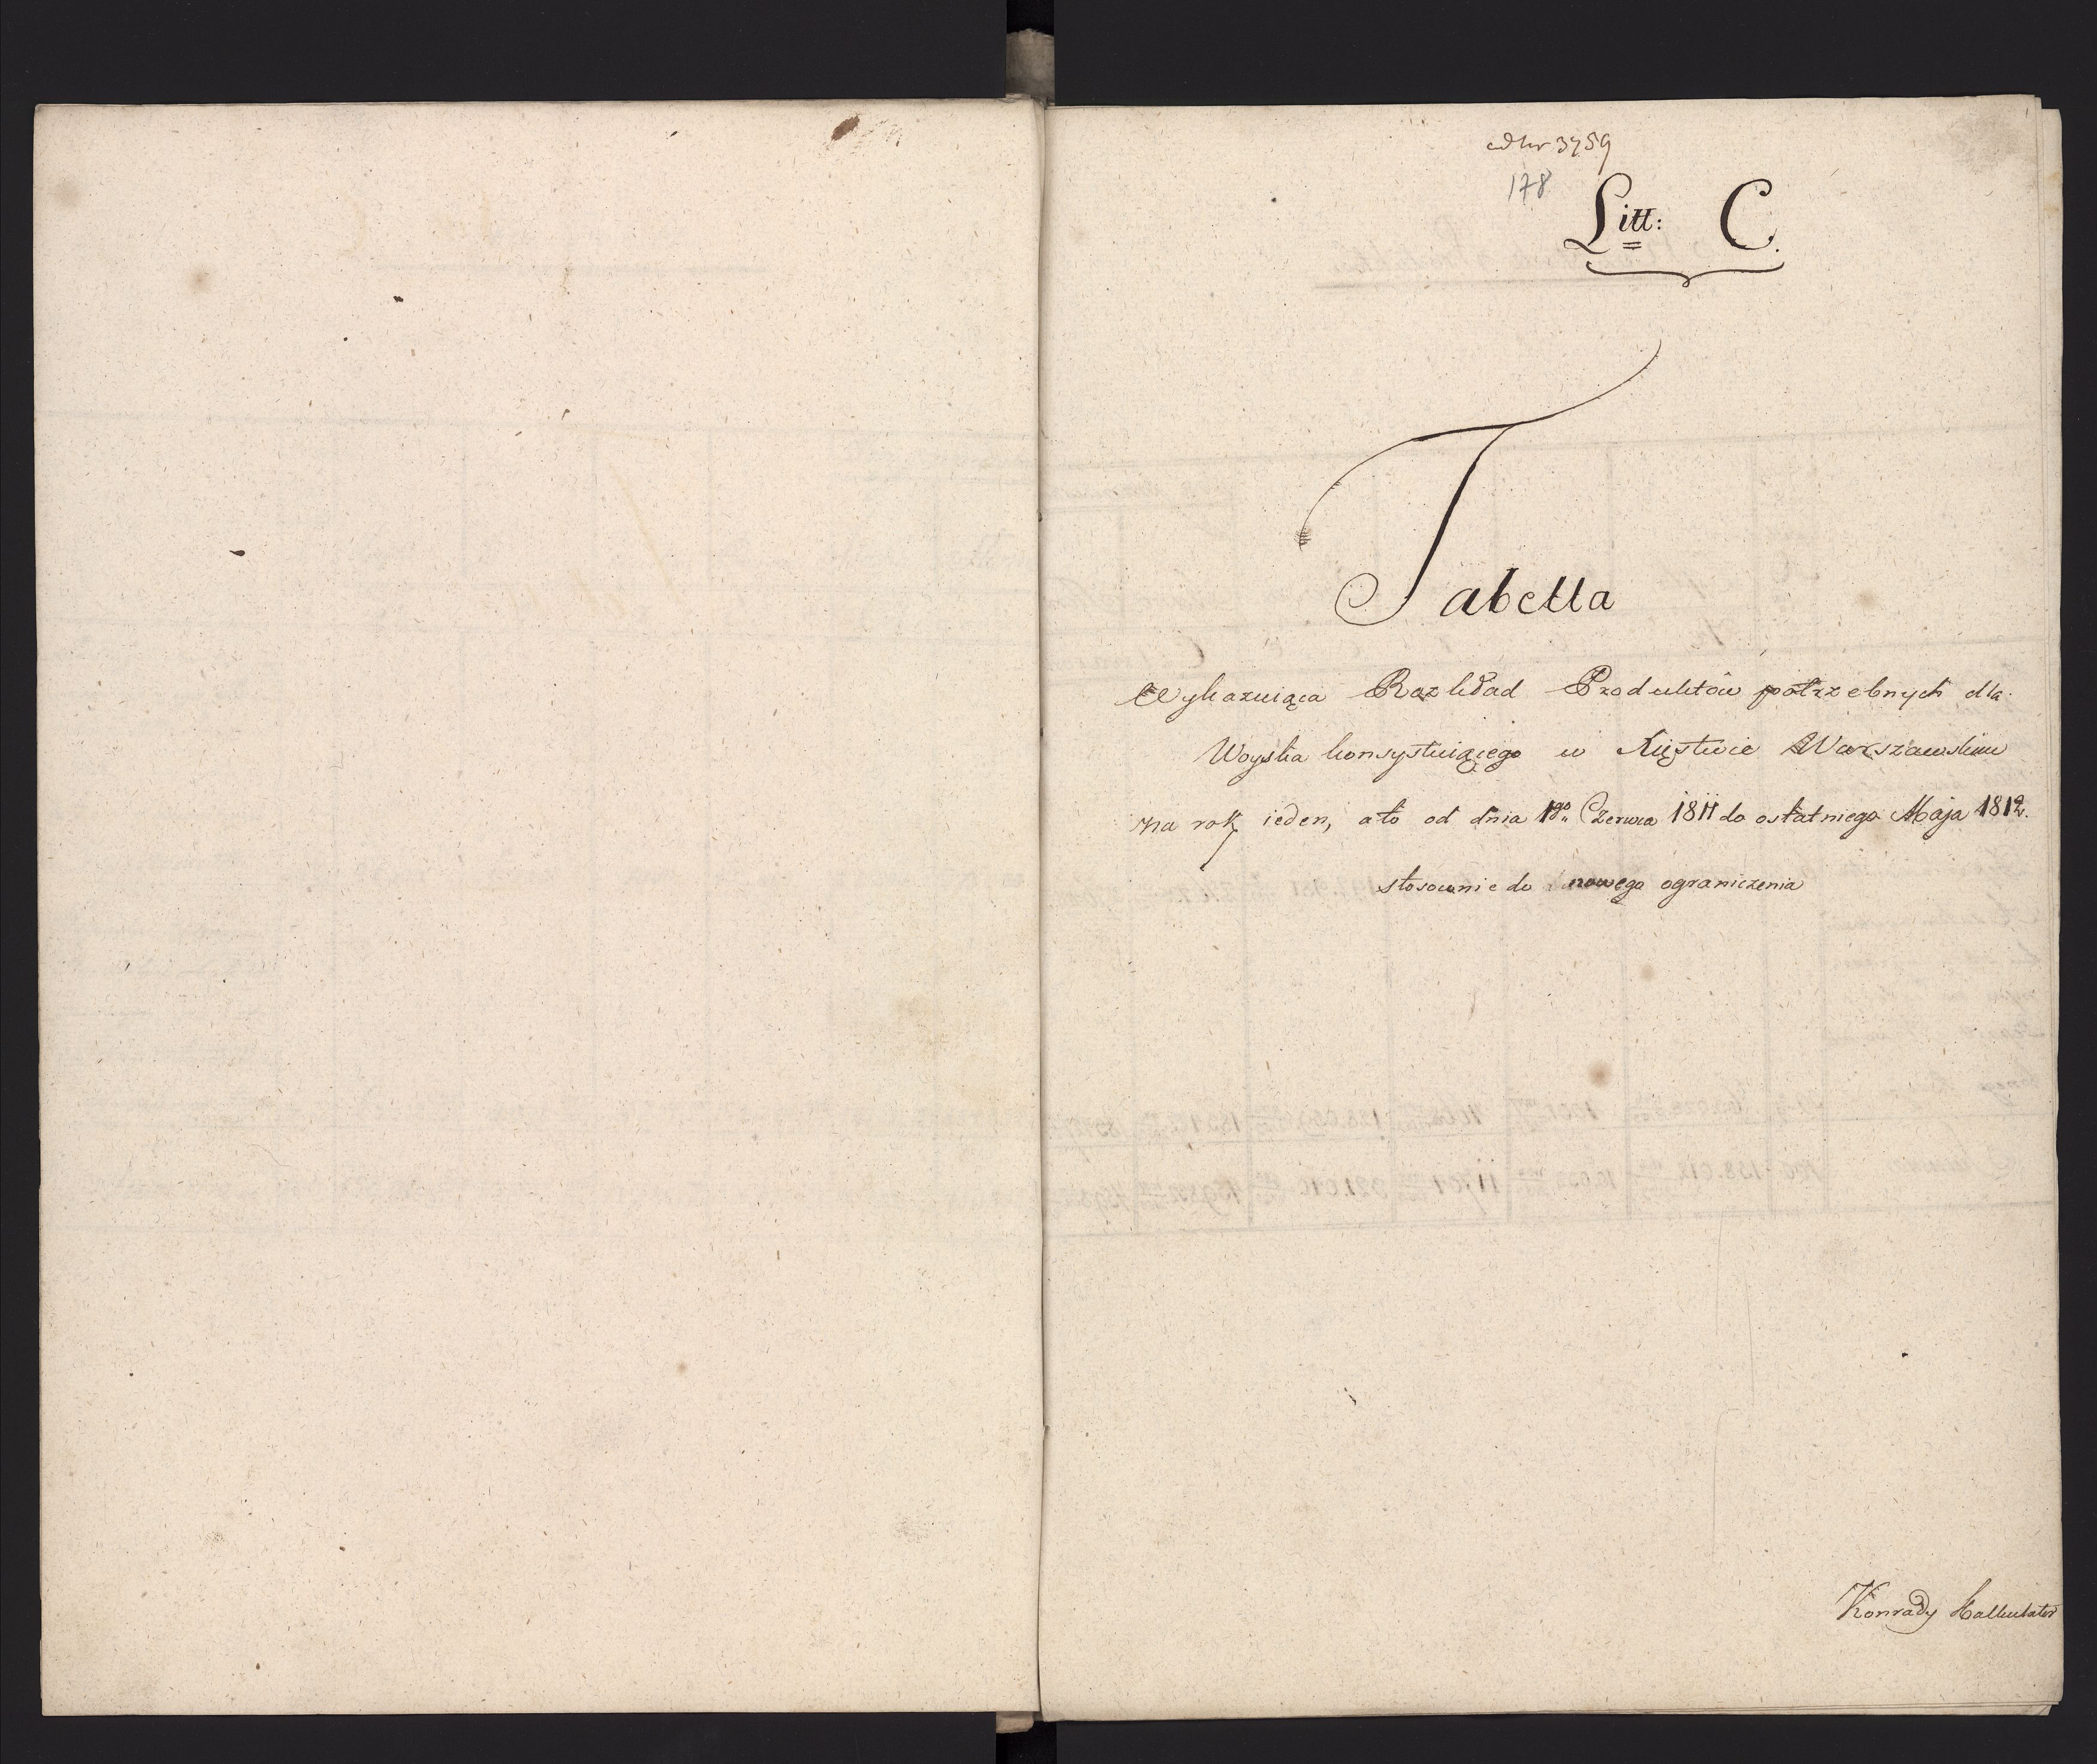 ad Nr 3759
178
Litt: C.
Tabella
Wykazuiąca Rozkład Produktów potrzebnych dla
Woyska konsystuiącego w Xięstwie Warszawskim
na rok ieden, a to od dnia 1go Czerwca 1811 do ostatniego Maja 1812.
stosownie do nowego ograniczenia
Konrady Kalkulator